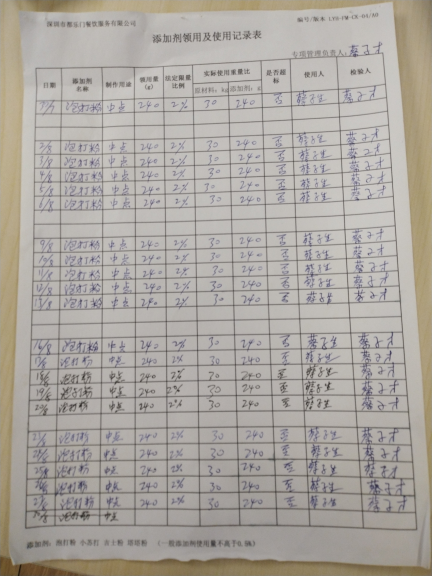 深圳市都乐门餐饮服务有限公司
添加剂领用及使用记录表
专项管理负责人: 蔡子才
日期 添加剂名称 制作用途 领用量(g) 法定限量比例 实际使用重量比 是否超标 使用人 检验人
原材料: kg 添加剂: g
泡打粉 中点 240 2% 30 240 否 蔡子生 蔡子才
2/8 泡打粉 中点 240 2% 30 240 否 蔡子生 蔡子才
3/8 泡打粉 中点 240 2% 30 240 否 蔡子生 蔡子才
4/8 泡打粉 中点 240 2% 30 240 否 蔡子生 蔡子才
5/8 泡打粉 中点 240 2% 30 240 否 蔡子生 蔡子才
6/8 泡打粉 中点 240 2% 30 240 否 蔡子生 蔡子才
9/8 泡打粉 中点 240 2% 30 240 否 蔡子生 蔡子才
10/8 泡打粉 中点 240 2% 30 240 否 蔡子生 蔡子才
11/8 泡打粉 中点 240 2% 30 240 否 蔡子生 蔡子才
12/8 泡打粉 中点 240 2% 30 240 否 蔡子生 蔡子才
13/8 泡打粉 中点 240 2% 30 240 否 蔡子生 蔡子才
16/8 泡打粉 中点 240 2% 30 240 否 蔡子生 蔡子才
泡打粉 中点 240 2% 30 240 否 蔡子生 蔡子才
泡打粉 中点 240 2% 30 240 否 蔡子生 蔡子才
泡打粉 中点 240 2% 30 240 否 蔡子生 蔡子才
泡打粉 中点 240 2% 30 240 否 蔡子生 蔡子才
泡打粉 中点 240 2% 30 240 否 蔡子生 蔡子才
泡打粉 中点 240 2% 30 240 否 蔡子生 蔡子才
泡打粉 中点 240 2% 30 240 否 蔡子生 蔡子才
泡打粉 中点 240 2% 30 240 否 蔡子生 蔡子才
泡打粉 中点 240 2% 30 240 否 蔡子生 蔡子才
泡打粉 中点
添加剂: 泡打粉 小苏打 吉士粉 塔塔粉 (一般添加剂使用量不高于0.5%)